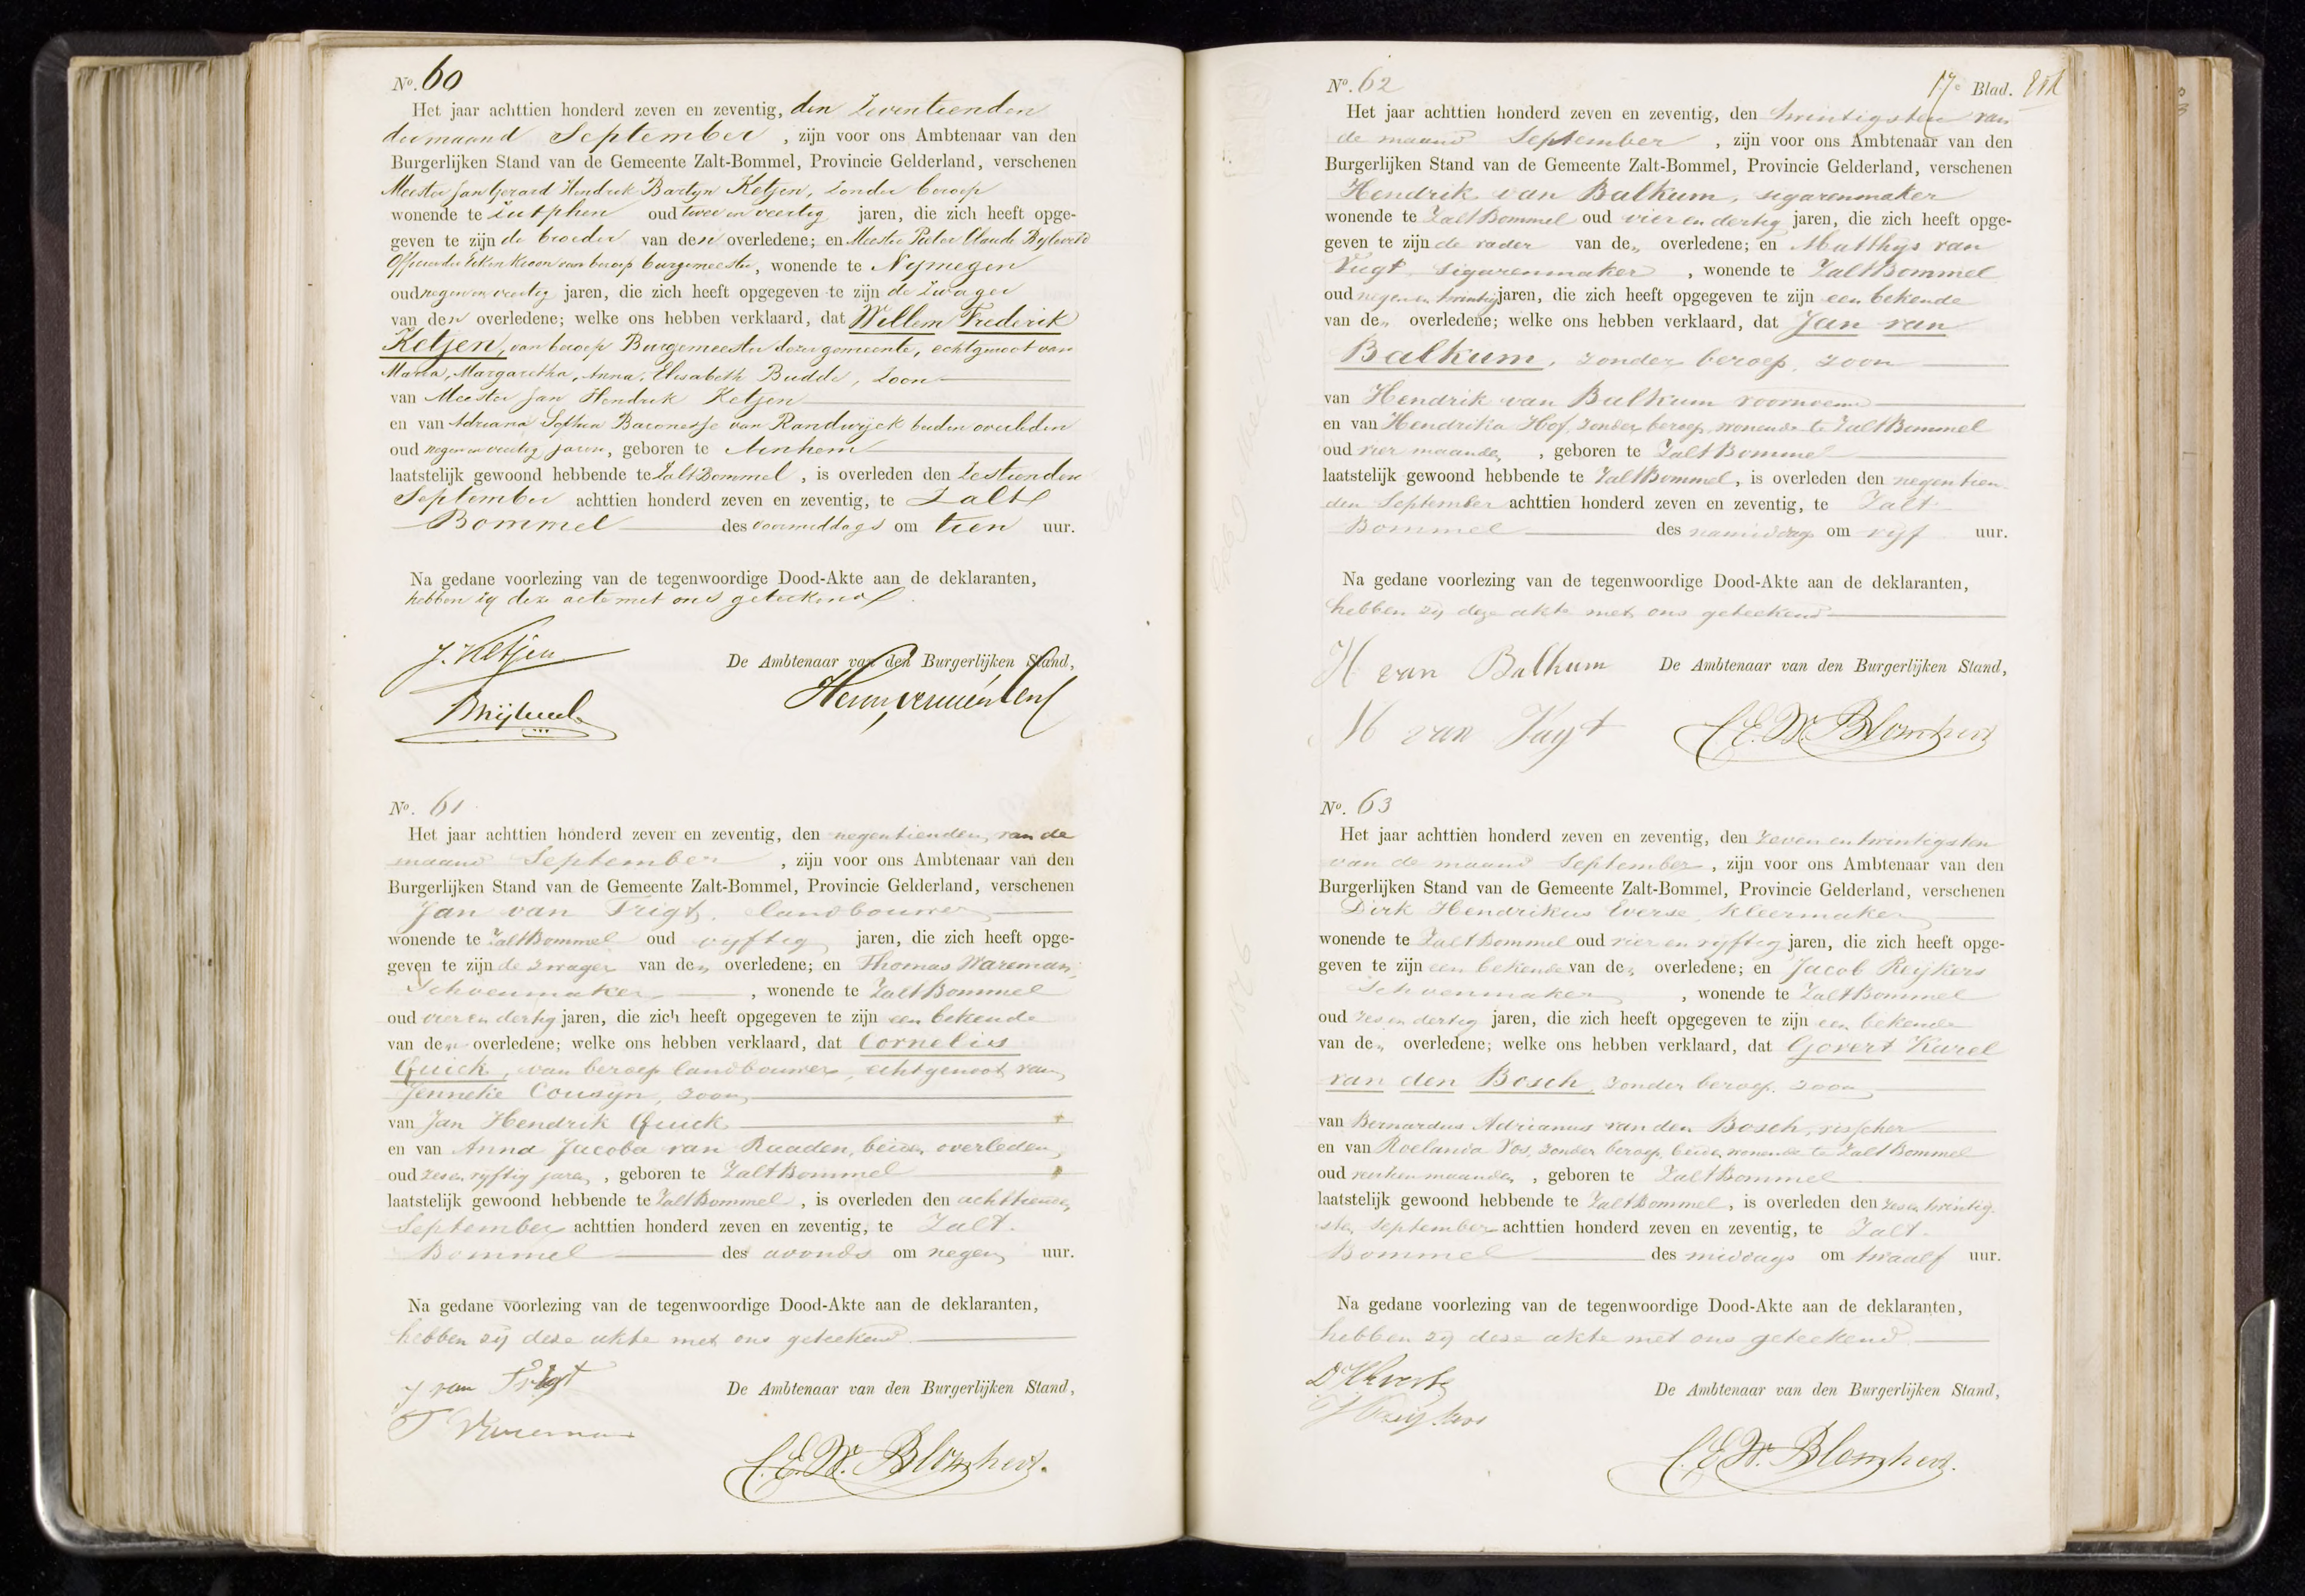 No. 60
Het jaar achttien honderd zeven en zeventig, den Zeventienden
der maand September, zijn voor ons Ambtenaar van den
Burgerlijken Stand van de Gemeente Zalt-Bommel, Provincie Gelderland, verschenen
Meester Jan Gerard Hendrik Bartyn Ketjen, zonder beroep
wonende te Zutphen oud twee en veertig jaren, die zich heeft opge-
geven te zijn de broeder van den overledene; en Meester Pieter Claude Bijleveld
Officier der Eiken Kroon van beroep burgemeester, wonende te Nymegen
oud negen en veertig jaren, die zich heeft opgegeven te zijn de Zwager
van den overledene; welke ons hebben verklaard, dat Willem Frederik
Ketjen, van beroep Burgemeester dezer gemeente, echtgenoot van
Maria, Margaretha, Anna, Elisabeth Budde, Zoon
van Meester Jan Hendrik Ketjen
en van Adriana Sophia Baronesse van Randwijck beiden overleden
oud negen en veertig jaren, geboren te Arnhem
laatstelijk gewoond hebbende te ZaltBommel, is overleden den Zestienden
September achttien honderd zeven en zeventig, te Zalt
Bommel des voormiddags om tien uur.
Na gedane voorlezing van de tegenwoordige Dood-Akte aan de deklaranten,
hebben zy deze acte met ons geteekend.
J. Ketjen
De Ambtenaar van den Burgerlijken Stand,
Bijleveld
No. 61
Het jaar achttien honderd zeven en zeventig, den negentienden van de
maand September, zijn voor ons Ambtenaar van den
Burgerlijken Stand van de Gemeente Zalt-Bommel, Provincie Gelderland, verschenen
Jan van Trigt, landbouwer
wonende te ZaltBommel oud vyftig jaren, die zich heeft opge-
geven te zijn de zwager van den overledene; en Thomas Wareman,
Schoenmaker, wonende te ZaltBommel
oud vier en dertig jaren, die zich heeft opgegeven te zijn een bekende
van den overledene; welke ons hebben verklaard, dat Cornelis
Quick, van beroep landbouwer, echtgenoot van
Jenneke Cousyn, zoon
van Jan Hendrik Quick
en van Anna Jacoba van Raaden, beiden overleden,
oud zes en vyftig jaren, geboren te ZaltBommel
laatstelijk gewoond hebbende te ZaltBommel, is overleden den achttienden
September achttien honderd zeven en zeventig, te Zalt-
Bommel des avonds om negen uur.
Na gedane voorlezing van de tegenwoordige Dood-Akte aan de deklaranten,
hebben zy deze akte met ons geteekend.
J van Trigt
De Ambtenaar van den Burgerlijken Stand,
T Wareman
C.E.W. Blomhert.
No. 62
17e Blad.
Het jaar achttien honderd zeven en zeventig, den Twintigsten van
de maand September, zijn voor ons Ambtenaar van den
Burgerlijken Stand van de Gemeente Zalt-Bommel, Provincie Gelderland, verschenen
Hendrik van Balkum, sigarenmaker
wonende te ZaltBommel oud vier en dertig jaren, die zich heeft opge-
geven te zijn de vader van den overledene; en Matthijs van
Vugt, sigarenmaker, wonende te ZaltBommel
oud negen en twintig jaren, die zich heeft opgegeven te zijn een bekende
van den overledene; welke ons hebben verklaard, dat Jan van
Balkum, zonder beroep, zoon
van Hendrik van Balkum voornoemd
en van Hendrika Hof, zonder beroep, wonende te ZaltBommel
oud vier maanden, geboren te ZaltBommel
laatstelijk gewoond hebbende te ZaltBommel, is overleden den negentien-
den September achttien honderd zeven en zeventig, te Zalt-
Bommel des namiddags om vyf uur.
Na gedane voorlezing van de tegenwoordige Dood-Akte aan de deklaranten,
hebben zy deze akte met ons geteekend
H van Balkum
De Ambtenaar van den Burgerlijken Stand,
M van Vugt
C.E.W. Blomhert
No. 63
Het jaar achttien honderd zeven en zeventig, den zeven en twintigsten
van de maand September, zijn voor ons Ambtenaar van den
Burgerlijken Stand van de Gemeente Zalt-Bommel, Provincie Gelderland, verschenen
Dirk Hendrikus Everse, kleermaker
wonende te ZaltBommel oud vier en vyftig jaren, die zich heeft opge-
geven te zijn een bekende van den overledene; en Jacob Reijkers
Schoenmaker, wonende te ZaltBommel
oud zes en dertig jaren, die zich heeft opgegeven te zijn een bekende
van den overledene; welke ons hebben verklaard, dat Govert Karel
van den Bosch, zonder beroep, zoon
van Bernardus Adrianus van den Bosch, visscher
en van Roelanda Vos, zonder beroep, beiden wonende te ZaltBommel
oud veertien maanden, geboren te ZaltBommel
laatstelijk gewoond hebbende te ZaltBommel, is overleden den zes en twintig-
sten September achttien honderd zeven en zeventig, te Zalt-
Bommel des middags om twaalf uur.
Na gedane voorlezing van de tegenwoordige Dood-Akte aan de deklaranten,
hebben zy deze akte met ons geteekend.
D H Everse
De Ambtenaar van den Burgerlijken Stand,
J Reijkers
C.E.W. Blomhert.